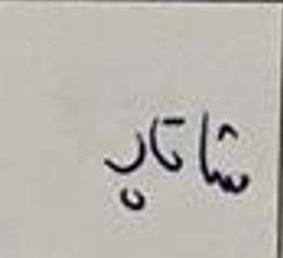 شاتاپ